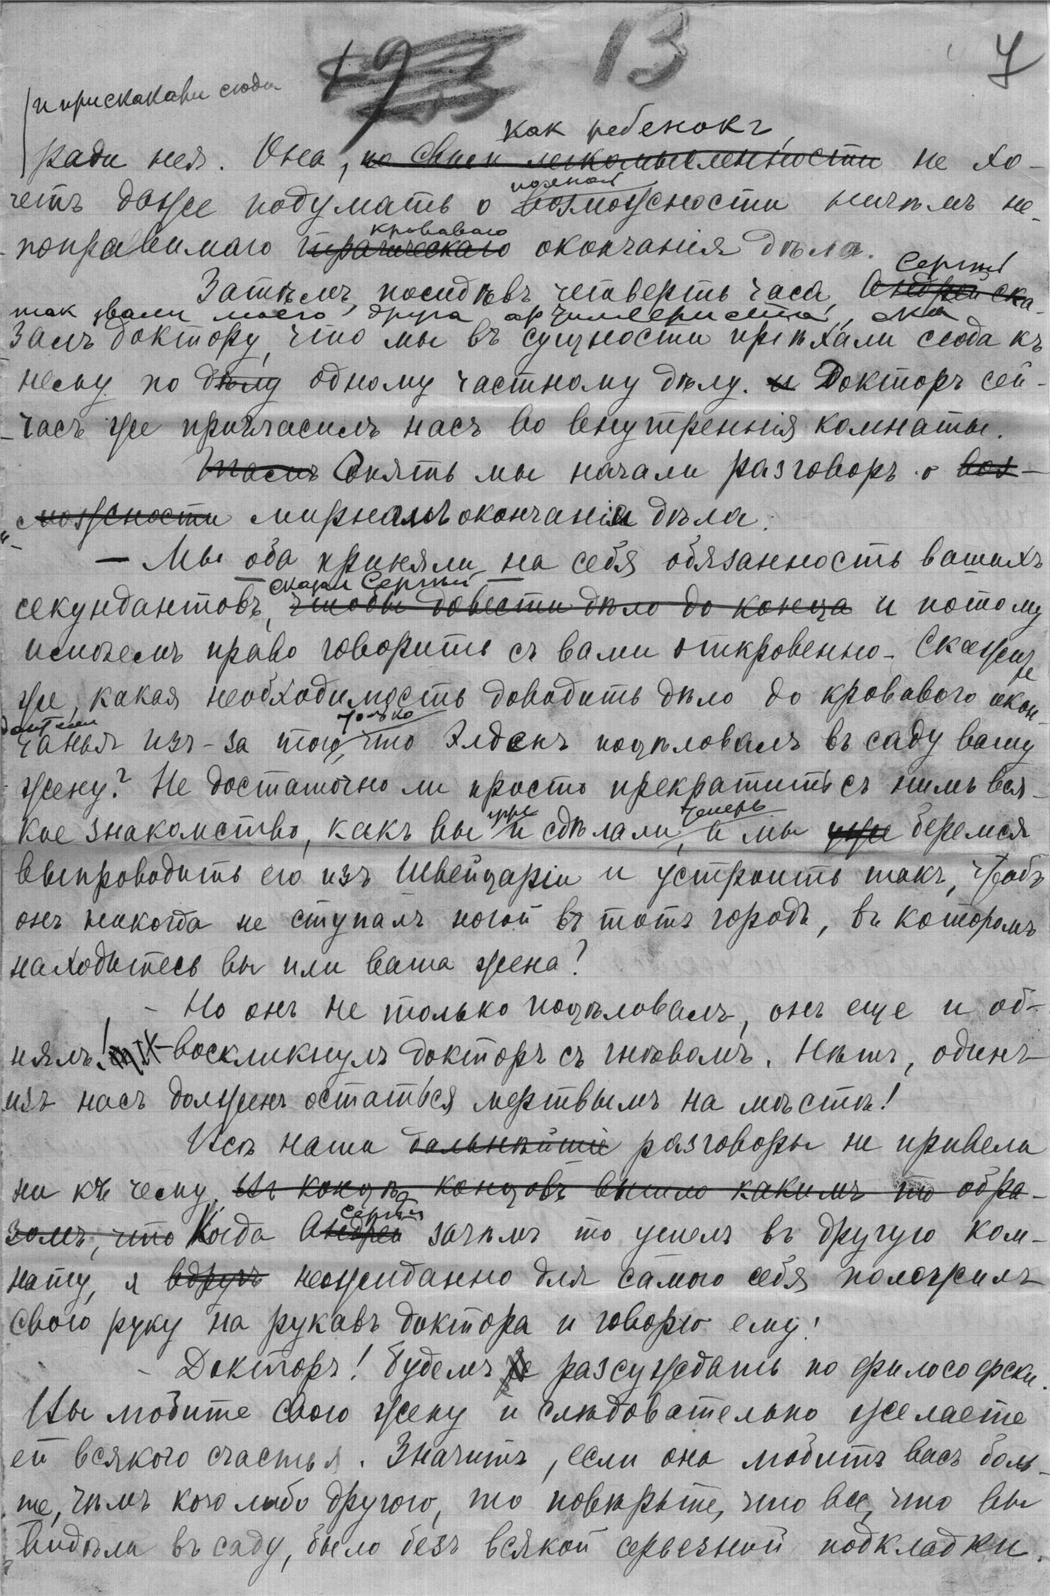 19 13 7
и прискакавъ сюда
как ребенокъ,
ради нея. Она, по своей легкомысленности не хо-
полной
четъ даже подумать о возможности ничѣмъ не-
кроваваго
поправимаго трагическаго окончанія дѣла.
Сергѣй
Затѣмъ, посидѣвъ четверть часа, Андрей ска-
так звали моего друга
залъ доктору, что мы въ сущности пріѣхали сюда къ
нему по дѣлу одному частному дѣлу. и Докторъ сей-
часъ же пригласилъ насъ во внутреннія комнаты.
Опять мы начали разговоръ о воз-
можности мирномъ окончаніи дѣла.
— Мы оба приняли на себя обязанность вашихъ
— сказалъ Сергѣй —
секундантовъ, чтобы довести дѣло до конца и потому
имѣемъ право говорить съ вами откровенно. Скажите
же, какая необходимость доводить дѣло до кроваваго окон-
только
чанья изъ-за того, что Элдекъ поцѣловалъ въ саду вашу
жену? Не достаточно ли просто прекратить съ нимъ вся-
уже теперь
кое знакомство, какъ вы и сдѣлали, а мы уже беремся
выпроводить его изъ Швейцаріи и устроить такъ, чтобъ
онъ никогда не ступалъ ногой въ тотъ городъ, въ которомъ
находитесь вы или ваша жена?
- Но онъ не только поцѣловалъ, онъ еще и об-
нялъ! — воскликнулъ докторъ съ гнѣвомъ. Нѣтъ, одинъ
изъ насъ долженъ остаться мертвымъ на мѣстѣ!
Всѣ наши дальнѣйшіе разговоры не привели
ни къ чему. Въ концѣ концовъ вышло какимъ то обра-
Сергѣй
зомъ, что Когда Андрей зачѣмъ то ушелъ въ другую ком-
нату, я вдругъ неожиданно для самого себя положилъ
свою руку на рукавъ доктора и говорю ему:
- Докторъ! Будемъ разсуждать по философски.
Вы любите свою жену и слѣдовательно желаете
ей всякого счастья. Значитъ, если она любитъ васъ боль-
ше, чѣмъ кого либо другого, то повѣрьте, что все, что вы
видѣли въ саду, было безъ всякой серьезной подкладки.